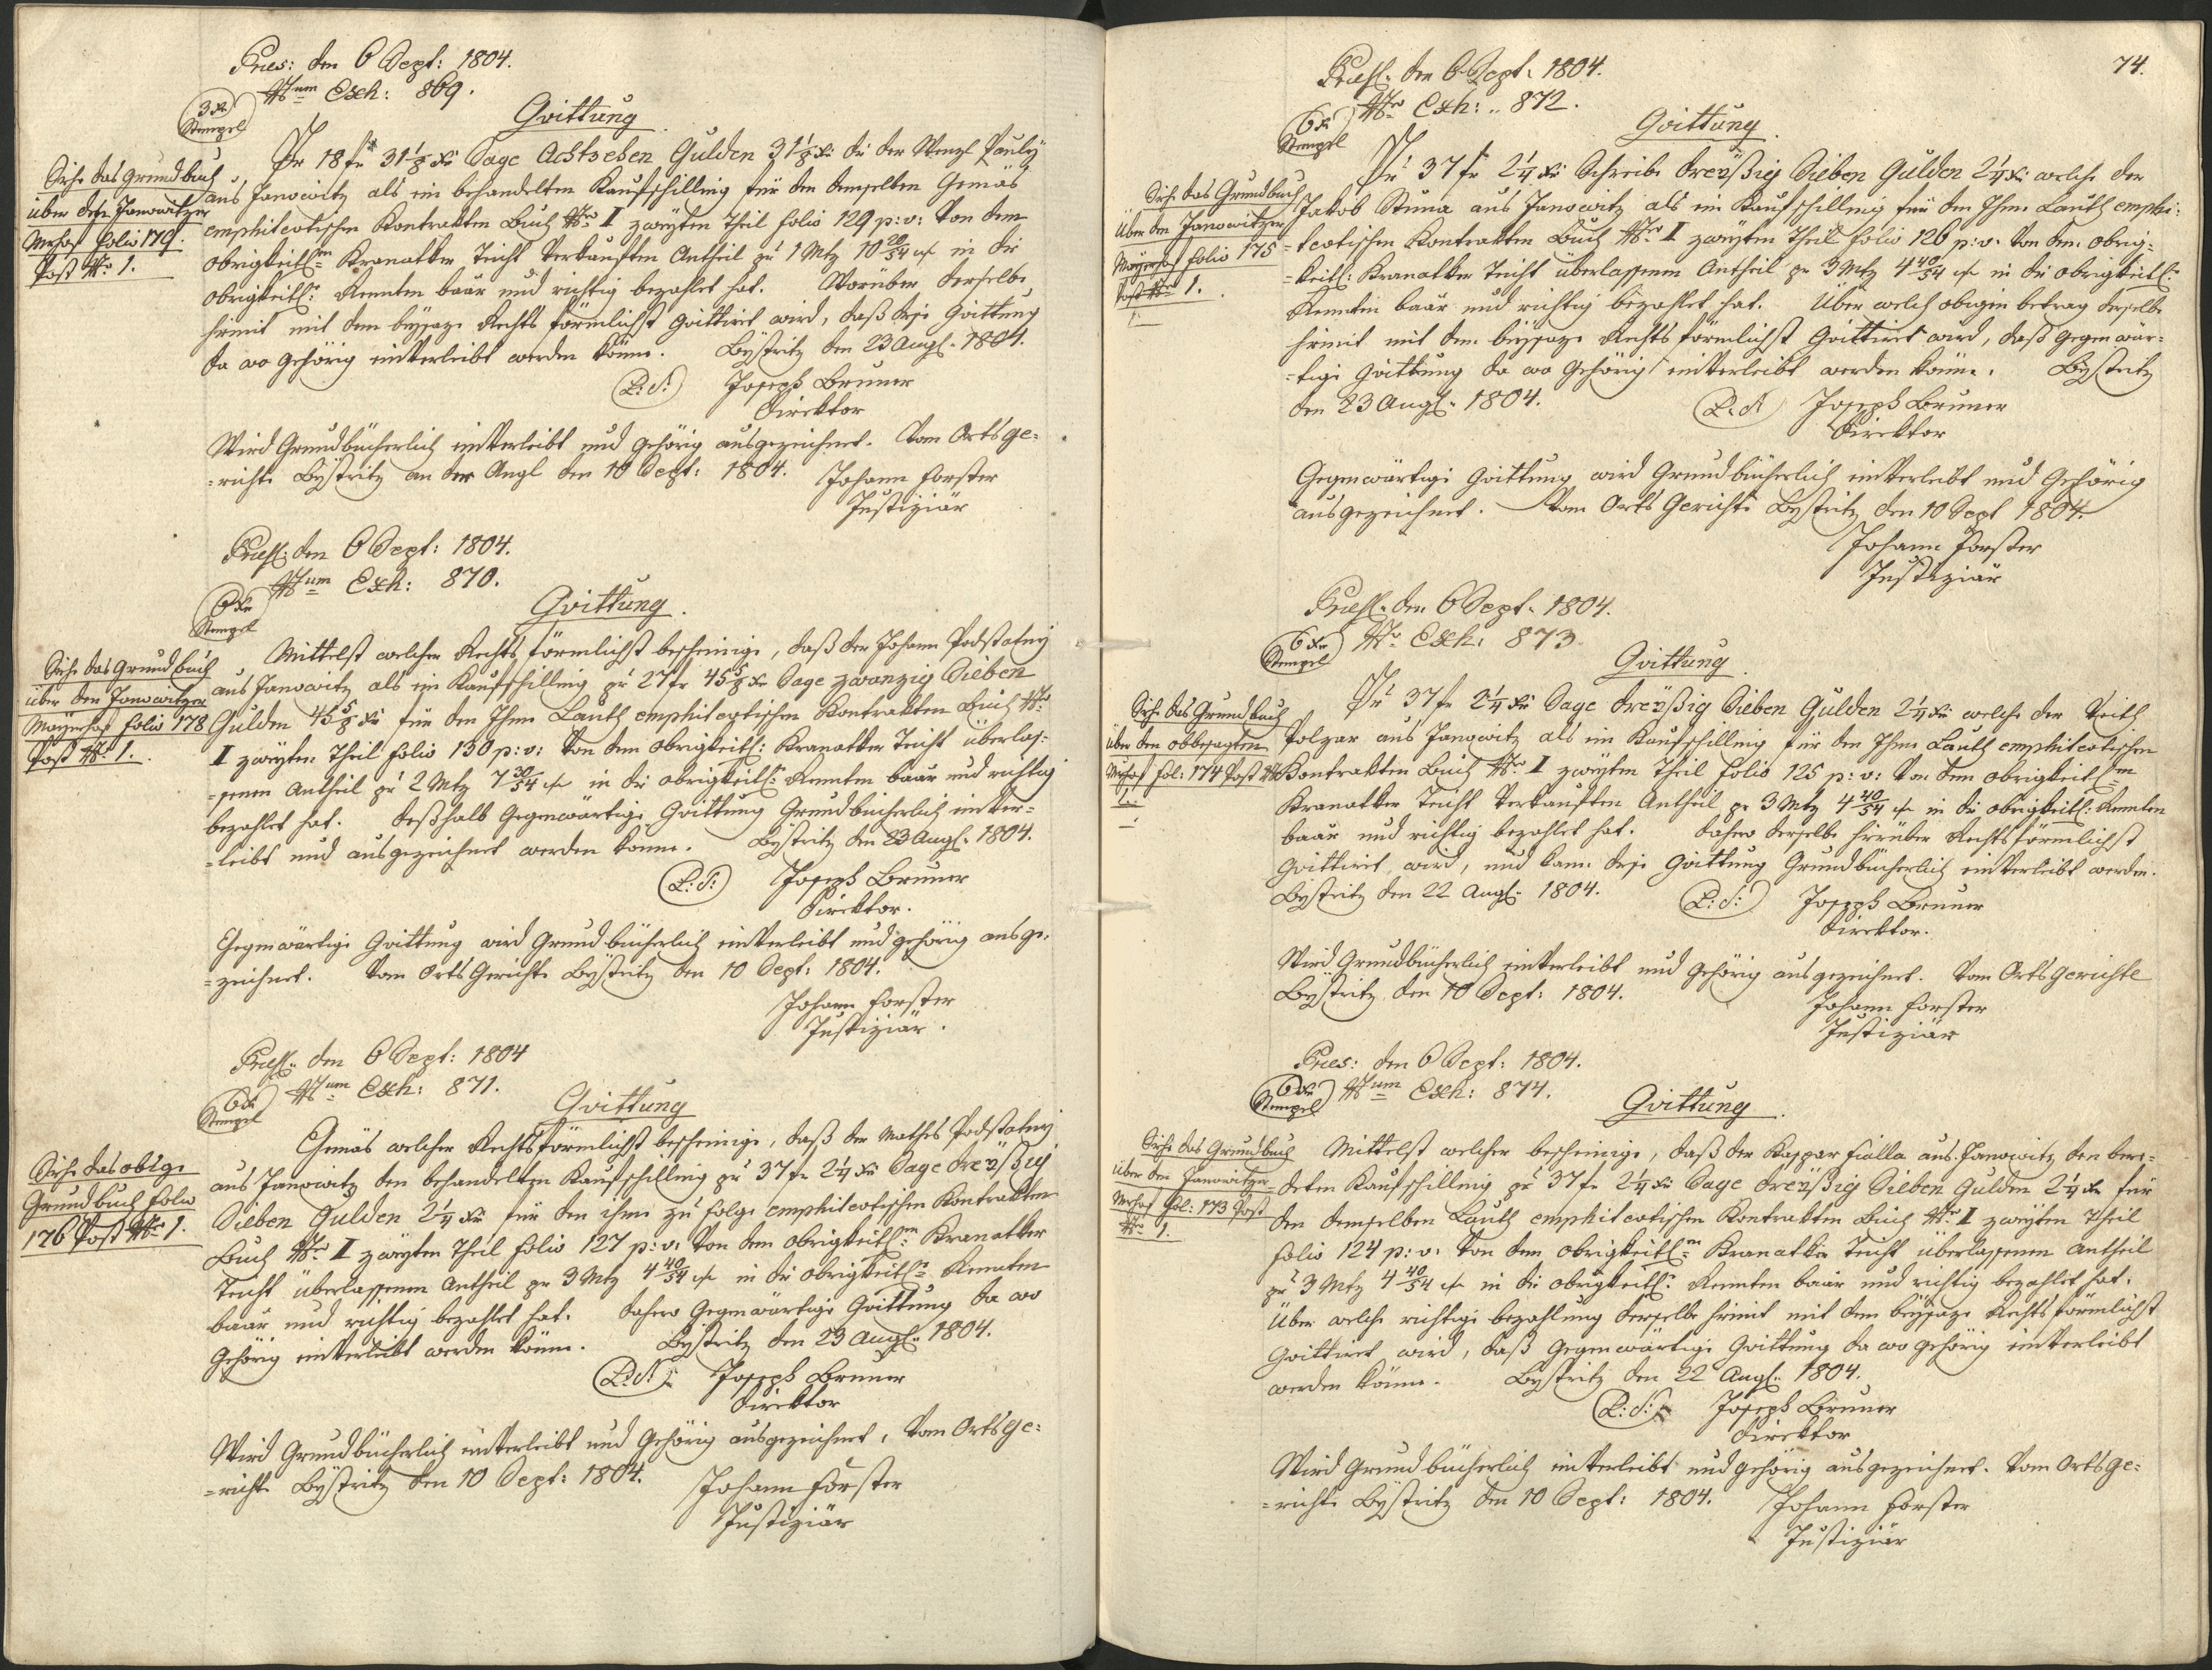 Præs: den 6 Sept: 1804.
Num Exh: 869.
3 xr
Stempel
Quittung
Siehe das Grundbuch
über dese Janowitzer
Mrhof folio 179.
Post Nr. 1.
Pr 18 fr 31 1/8 xr Sage Achtzehen Gulden 31 1/8 xr die der Wenzl Pauly
aus Janowitz als ein behandelten Kaufschilling für den demselben Gemäs
emphiteotischen Kontrakten Buch Nro II zweyten Theil folio 129 p: v: von dem
obrigkeitl:n Kranatker Teicht verkauften Antheil zu 1 Mtz 10 20/54 in die
obrigkeitl: Rennten baar und richtig bezahlet hat. Worüber derselbe
hiemit mit dem beysaze Rechts förmlichst quittiret wird, daß diese Quittung
da wo gehörig einverleibt werden könne. Bystritz den 23 Augl: 1804.
L: S: Joseph Bruner
Direktor
Wird Grundbücherlich einverleibt und gehörig ausgezeichnet. Vom Ortsge=
=richte Bystritz an der Angl den 10 Sept: 1804. Johann Forster
Justiziär
Præs: den 6 Sept: 1804.
Num Exh: 870.
6 xr
Stempel
Quittung.
Siehe das Grundbuch
über den Janowitzer
Mayerhof folio 178
Post Nr. 1.
Mittelst welcher Rechts förmlichst bescheinige, daß der Johann Podstatny
aus Janowitz als ein Kaufschilling pr 27 fr 45 5/8 xr Sage zwanzig Sieben
Gulden 45 5/8 xr für den Ihm Lauth emphiteotischen Kontrakten Buch Nro
II zweyten Theil folio 130 p: v: von dem obrigkeitl: Kranatker Teicht überlas=
=senen Antheil pr 2 Mtz 7 30/54 in die obrigkeitl: Rennten baar und richtig
bezahlet hat. Deßhalb Gegenwärtige Quittung Grundbücherlich einver=
=leibt und ausgezeichnet werden könne. Bystritz den 23 Augl: 1804.
L: S: Joseph Bruner
Direktor.
Gegenwärtige Quittung wird Grundbücherlich einverleibt und gehörig ausge=
=zeichnet. Vom Orts Gerichte Bystritz den 10 Sept: 1804.
Johann Forster
Justiziär.
Præs: den 6 Sept: 1804
Num Exh: 871.
6 xr
Stempel
Quittung
Siehe das obige
Grundbuch folio
176 Post Nr. 1.
Gemäs welcher Rechtsförmlichst bescheinige, daß der Mathes Podstatny
aus Janowitz den behandelten Kaufschilling pr 37 fr 2 1/4 xr Sage dreÿßig
Sieben Gulden 2 1/4 xr für den ihm zu folge emphiteotischen Kontrakten
Buch Nro II zweyten Theil folio 127 p: v: von dem obrigkeitl:n Kranatker
Teicht überlassenen Antheil pr 3 Mtz 4 40/54 in die obrigkeitl: Rennten
baar und richtig bezahlet hat. Dahero Gegenwärtige Quittung da wo
Gehörig einverleibt werden könne. Bystritz den 23 Augl: 1804.
L: S: Joseph Bruner
Direktor
Wird Grundbücherlich einverleibt und Gehörig ausgezeichnet, Vom Ortsge=
=richte Bystritz den 10 Sept: 1804. Johann Forster
Justiziär
74.
Præs: den 6 Sept: 1804.
Nro Exh: 872.
6 xr
Stempel
Quittung.
Siehe das Grundbuch
Über den Janowitzer
Mayerhof folio 175
Post Nro 1.
Pr 37 fr 2 1/4 xr Schreibe dreÿßig Sieben Gulden 2 1/4 xr welche der
Jakob Stuna aus Janowitz als ein Kaufschilling für den Ihm Lauth emphi=
=teotischen Kontrakten Buch Nro II zweyten Theil folio 126 p: v: von dem obrig=
=keitl: Kranatker Teicht überlassenen Antheil pr 3 Mtz 4 40/54 in die obrigkeitl:
Rennten baar und richtig bezahlet hat. Über welch obigen betrag derselbe
hiemit mit dem beysaze Rechts förmlichst Quittiret wird, daß gegenwär=
=tige Quittung da wo gehörig einverleibt werden könne. Bystritz
den 23 Augl: 1804. L: S: Joseph Bruner
Direktor
Gegenwärtige Quittung wird Grundbücherlich einverleibt und Gehörig
ausgezeichnet. Vom Orts Gerichte Bystritz den 10 Sept 1804.
Johann Forster
Justiziär
Præs: den 6 Sept: 1804.
Nro Exh: 873
6 xr
Stempel
Quittung
Siehe das Grundbuch
über den obbesagten
Mrhof fol: 174 Post Nr
1.
Pr 37 fr 2 1/4 xr Sage dreÿßig Sieben Gulden 2 1/4 xr welche der Veith
Polzar aus Janowitz als ein Kaufschilling für den Ihm Lauth emphiteotischen
Kontrakten Buch Nro II zweyten Theil folio 125 p: v: von dem obrigkeitl:n
Kranatker Teicht verkauften Antheil pr 3 Mtz 4 40/54 in die obrigkeitl: Rennten
baar und richtig bezahlet hat. Dahero derselbe hierüber Rechtsförmlichst
Quittiret wird, und kann diese Quittung Grundbücherlich einverleibt werden.
Bystritz den 22 Augl: 1804. L: S: Joseph Bruner
Direktor.
Wird Grundbücherlich einverleibt und gehörig ausgezeichnet. Vom Ortsgerichte
Bystritz den 10 Sept: 1804. Johann Forster
Justiziär
Præs: den 6 Sept: 1804.
Num Exh: 874.
6 xr
Stempel
Quittung.
Siehe das Grundbuch
über den Janowitzer
Mrhof fol: 173 Post
Nr. 1.
Mittelst welcher bescheinige, daß der Kaspar Fialla aus Janowitz den bere=
=deten Kaufschilling pr 37 fr 2 1/4 xr Sage dreÿßig Sieben Gulden 2 1/4 xr für
den demselben Lauth emphiteotischen Kontrakten Buch Nro II zweyten Theil
folio 124 p: v: von dem obrigkeitl:n Kranatker Teicht überlassenen Antheil
pr 3 Mtz 4 40/54 in die obrigkeitl: Rennten baar und richtig bezahlet hat.
Über welche richtige bezahlung derselbe hiemit mit dem beysaze Rechtsförmlichst
Quittiret wird, daß gegenwärtige Quittung da wo gehörig einverleibt
werden könne. Bystritz den 22 Augl: 1804.
L: S: Joseph Bruner
Direktor
Wird Grundbücherlich einverleibt und gehörig ausgezeichnet. Vom Ortsge=
=richte Bystritz den 10 Sept: 1804. Johann Forster
Justiziär